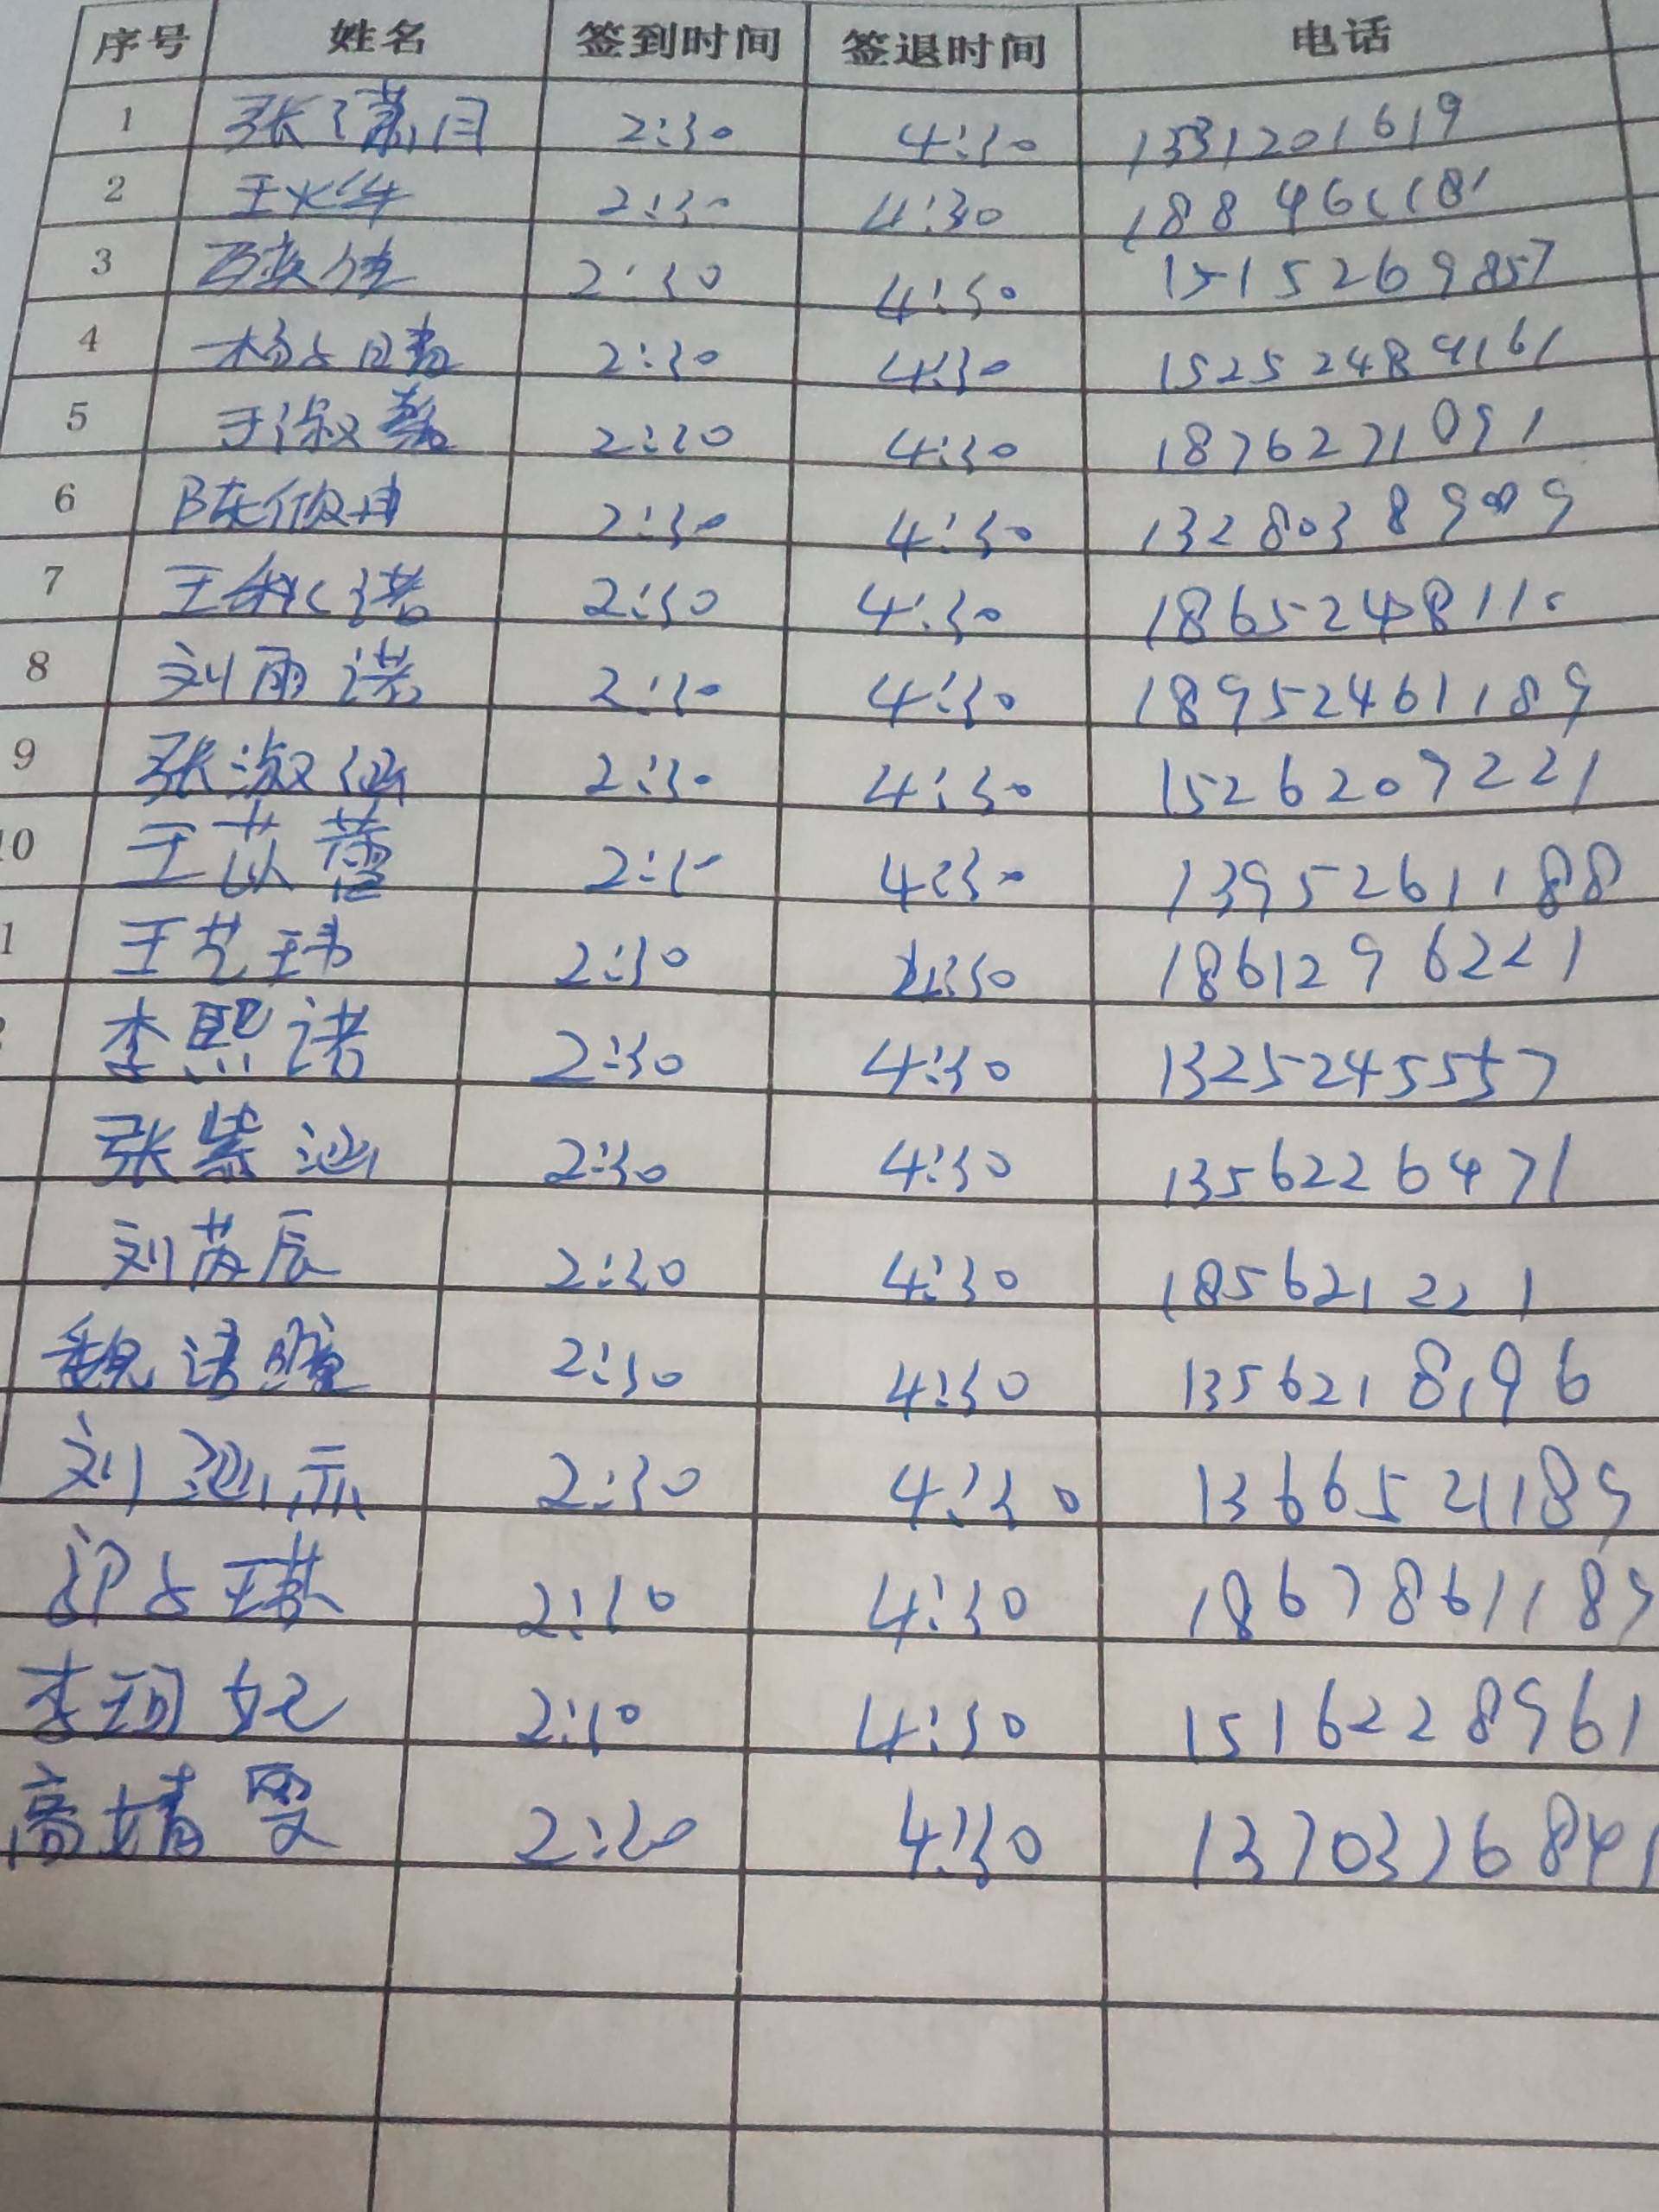 序号 姓名 签到时间 签退时间 电话
1 张潇月 2:30 4:30 15312016619
2 王火华 2:30 4:30
3 2:30 4:30 15152698857
4 2:30 4:30 15252489161
5 王淑慧 2:30 4:30 18762271091
6 陈俊冉 2:30 4:30
7 王梓诺 2:30 4:30 18652448110
8 刘雨诺 2:30 4:30 18952461189
9 张淑涵 2:30 4:30 15262097221
10 王苡萱 2:30 4:30 13952611188
1 王艺玮 2:30 4:30 18612996221
李熙诺 2:30 4:30 13252455557
张紫涵 2:30 4:30 13562226471
刘茵辰 2:30 4:30 1856212221
魏诺瞳 2:30 4:30 13562188196
刘涵示 2:30 4:30
2:30 4:30 18678611189
李珂妃 2:30 4:30 15162228961
高婧雯 2:30 4:30 13703768841